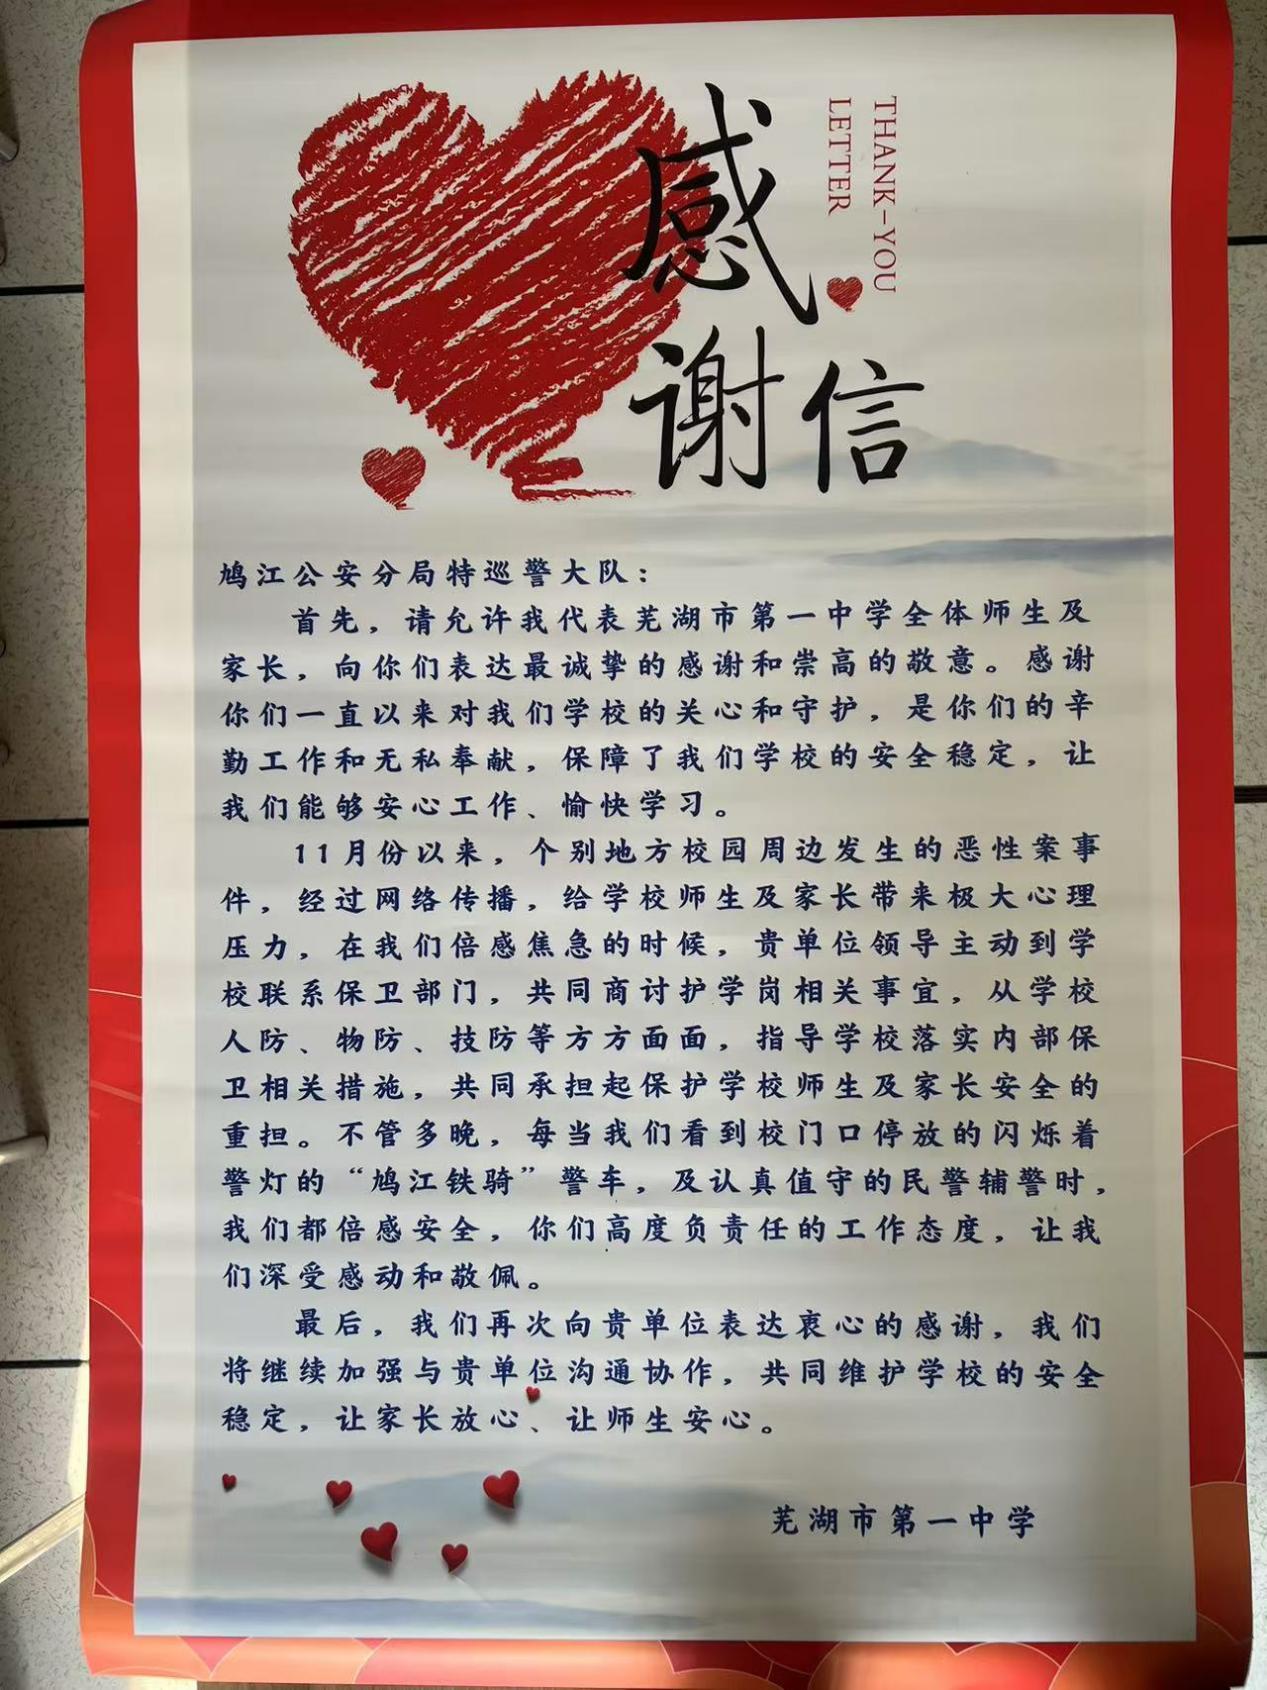 感谢信
THANK-YOU
LETTER
鸠江公安分局特巡警大队：
首先，请允许我代表芜湖市第一中学全体师生及
家长，向你们表达最诚挚的感谢和崇高的敬意。感谢
你们一直以来对我们学校的关心和守护，是你们的辛
勤工作和无私奉献，保障了我们学校的安全稳定，让
我们能够安心工作、愉快学习。
11月份以来，个别地方校园周边发生的恶性案事
件，经过网络传播，给学校师生及家长带来极大心理
压力，在我们倍感焦急的时候，贵单位领导主动到学
校联系保卫部门，共同商讨护学岗相关事宜，从学校
人防、物防、技防等方方面面，指导学校落实内部保
卫相关措施，共同承担起保护学校师生及家长安全的
重担。不管多晚，每当我们看到校门口停放的闪烁着
警灯的“鸠江铁骑”警车，及认真值守的民警辅警时，
我们都倍感安全，你们高度负责任的工作态度，让我
们深受感动和敬佩。
最后，我们再次向贵单位表达衷心的感谢，我们
将继续加强与贵单位沟通协作，共同维护学校的安全
稳定，让家长放心、让师生安心。
芜湖市第一中学